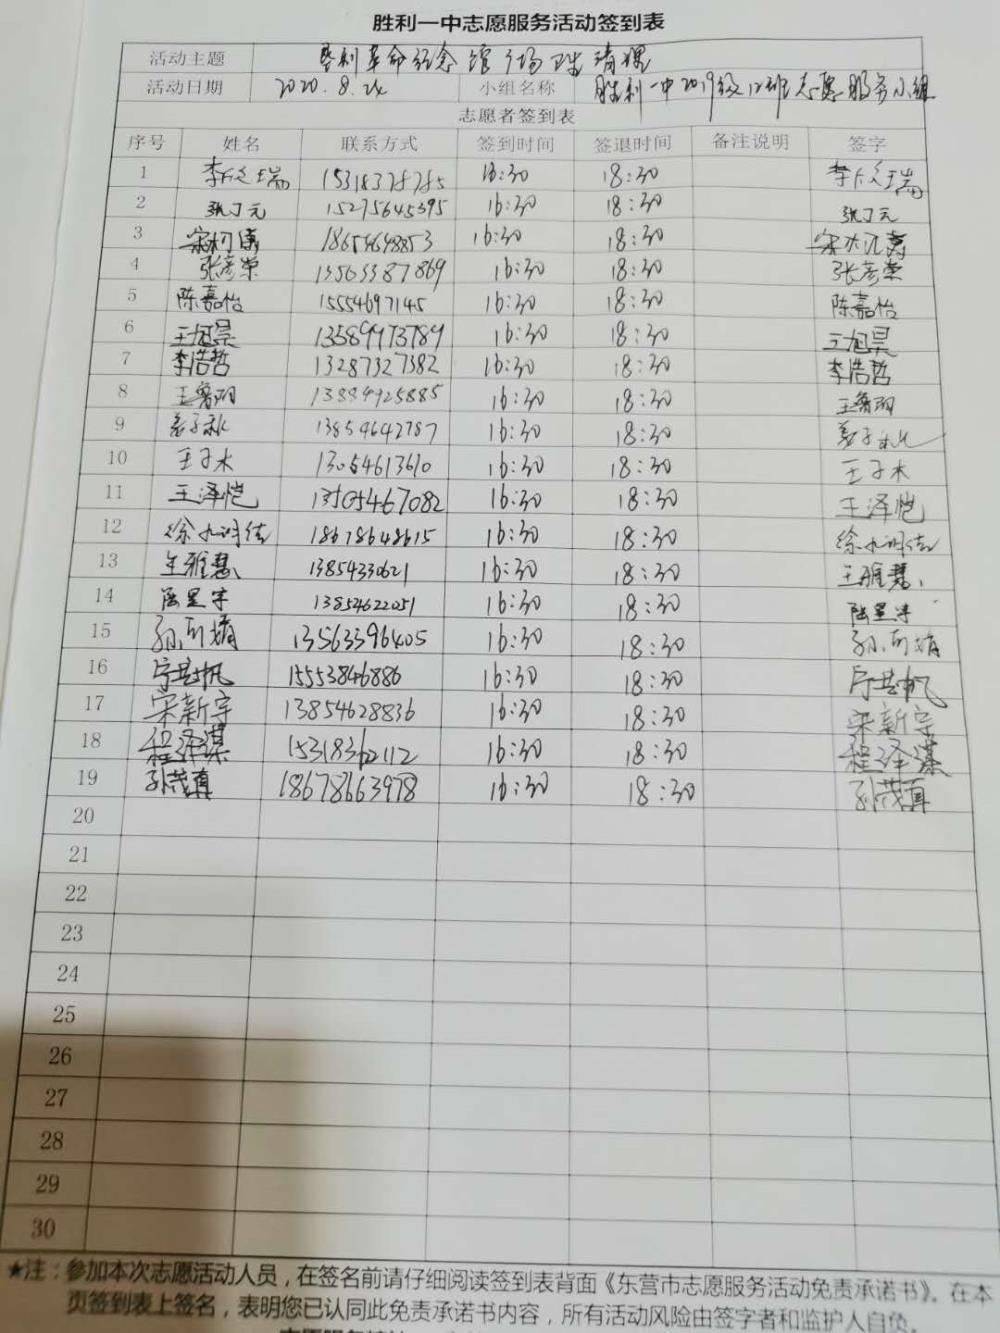 胜利一中志愿服务活动签到表
活动主题 垦利革命纪念馆广场卫生清理
活动日期 2020.8.24 小组名称 胜利一中2019级12班志愿服务小组
志愿者签到表
序号 姓名 联系方式 签到时间 签退时间 备注说明 签字
1 李欣瑞 15318378785 16:30 18:30 李欣瑞
2 张丁元 15275645395 16:30 18:30 张丁元
3 18654648853 16:30 18:30
4 张彦荣 13563387869 16:30 18:30 张彦荣
5 陈嘉怡 15554697145 16:30 18:30 陈嘉怡
6 王旭昊 13589973789 16:30 18:30 王旭昊
7 李浩哲 13287327382 16:30 18:30 李浩哲
8 王鲁玥 13884925885 16:30 18:30 王鲁玥
9 姜子秋 13854642787 16:30 18:30 姜子秋
10 王子木 13054613610 16:30 18:30 王子木
11 王泽恺 13505467082 16:30 18:30 王泽恺
12 18678648615 16:30 18:30
13 王雅慧 13854330621 16:30 18:30 王雅慧
14 陆星宇 13854622051 16:30 18:30 陆星宇
15 13563396405 16:30 18:30
16 15553846886 16:30 18:30
17 宋新宇 13854628836 16:30 18:30 宋新宇
18 程泽谋 15318362112 16:30 18:30 程泽谋
19 孙茂真 18678663978 16:30 18:30 孙茂真
20
21
22
23
24
25
26
27
28
29
30
★注：参加本次志愿活动人员，在签名前请仔细阅读签到表背面《东营市志愿服务活动免责承诺书》。在本
页签到表上签名，表明您已认同此免责承诺书内容，所有活动风险由签字者和监护人自负。